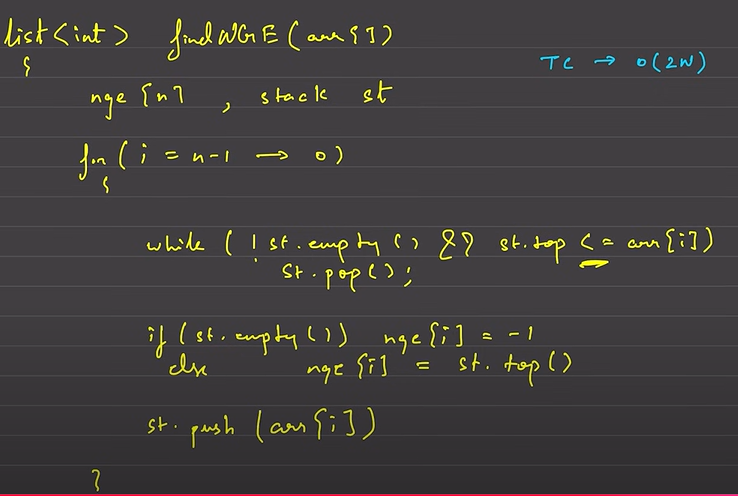 list<int> findNGE(arr[])
{
TC → O(2N)
nge[n] , stack st
for(i = n-1 → 0)
{
while ( ! st.empty() && st.top <= arr[i])
st.pop();
if (st.empty()) nge[i] = -1
else nge[i] = st.top()
st.push (arr[i])
}